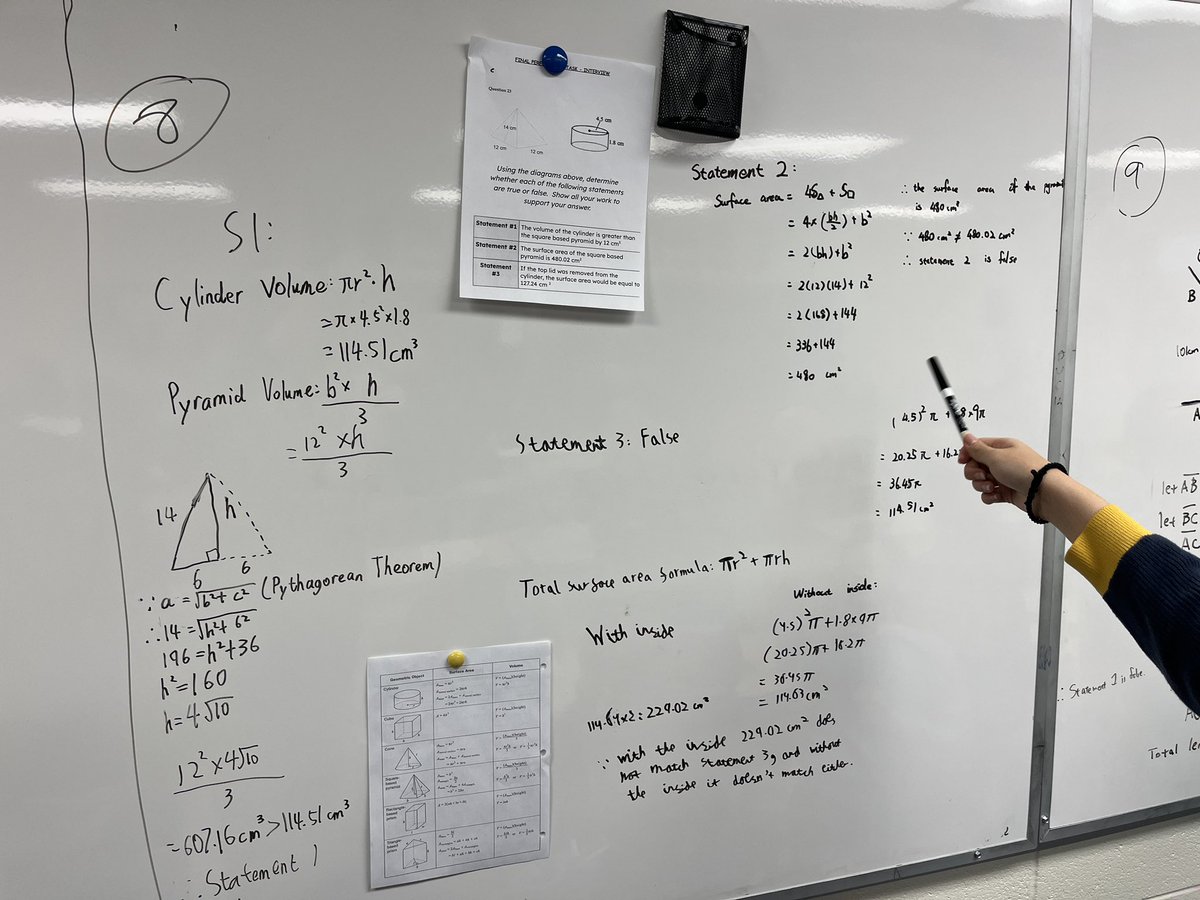 8
S1:
Cylinder Volume: πr²·h
= π × 4.5² × 1.8
= 114.51 cm³
Pyramid Volume: b² × h
3
= 12² × h
3
14
h
6 6
∵ a = √b² + c² (Pythagorean Theorem)
∴ 14 = √h² + 6²
196 = h² + 36
h² = 160
h = 4√10
12² × 4√10
3
= 607.16 cm³ > 114.51 cm³
∴ Statement 1
FINAL TASK - INTERVIEW
C
Question 23
14 cm
12 cm
12 cm
4.5 cm
1.8 cm
Using the diagrams above, determine
whether each of the following statements
are true or false. Show all your work to
support your answer.
Statement #1 The volume of the cylinder is greater than
the square based pyramid by 12 cm³
Statement #2 The surface area of the square based
pyramid is 480.02 cm²
Statement #3 If the top lid was removed from the
cylinder, the surface area would be equal to
127.24 cm²
Statement 2:
Surface area = 4S△ + S□
= 4×(bh/2) + b²
= 2(bh) + b²
= 2(12)(14) + 12²
= 2(168) + 144
= 336 + 144
= 480 cm²
∴ the surface area of the pyramid
is 480 cm²
∵ 480 cm² ≠ 480.02 cm²
∴ statement 2 is false
Statement 3: False
(4.5)²π + 8×9π
= 20.25π + 16.2
= 36.45π
= 114.51 cm²
Total surface area formula: πr² + πrh
With inside
114.64×2 = 229.02 cm²
Without inside:
(4.5)²π + 1.8×9π
(20.25)π + 16.2π
= 36.45π
= 114.63 cm³
∵ with the inside 229.02 cm² does
not match statement 3, and without
the inside it doesn't match either.
Geometric Object Surface Area Volume
Cylinder
Cube
Cone
Square-based pyramid
Rectangle-based prism
Triangle-based prism
9
B
10km
A
let AB
let BC
AC
∴ Statement 1 is false.
Total